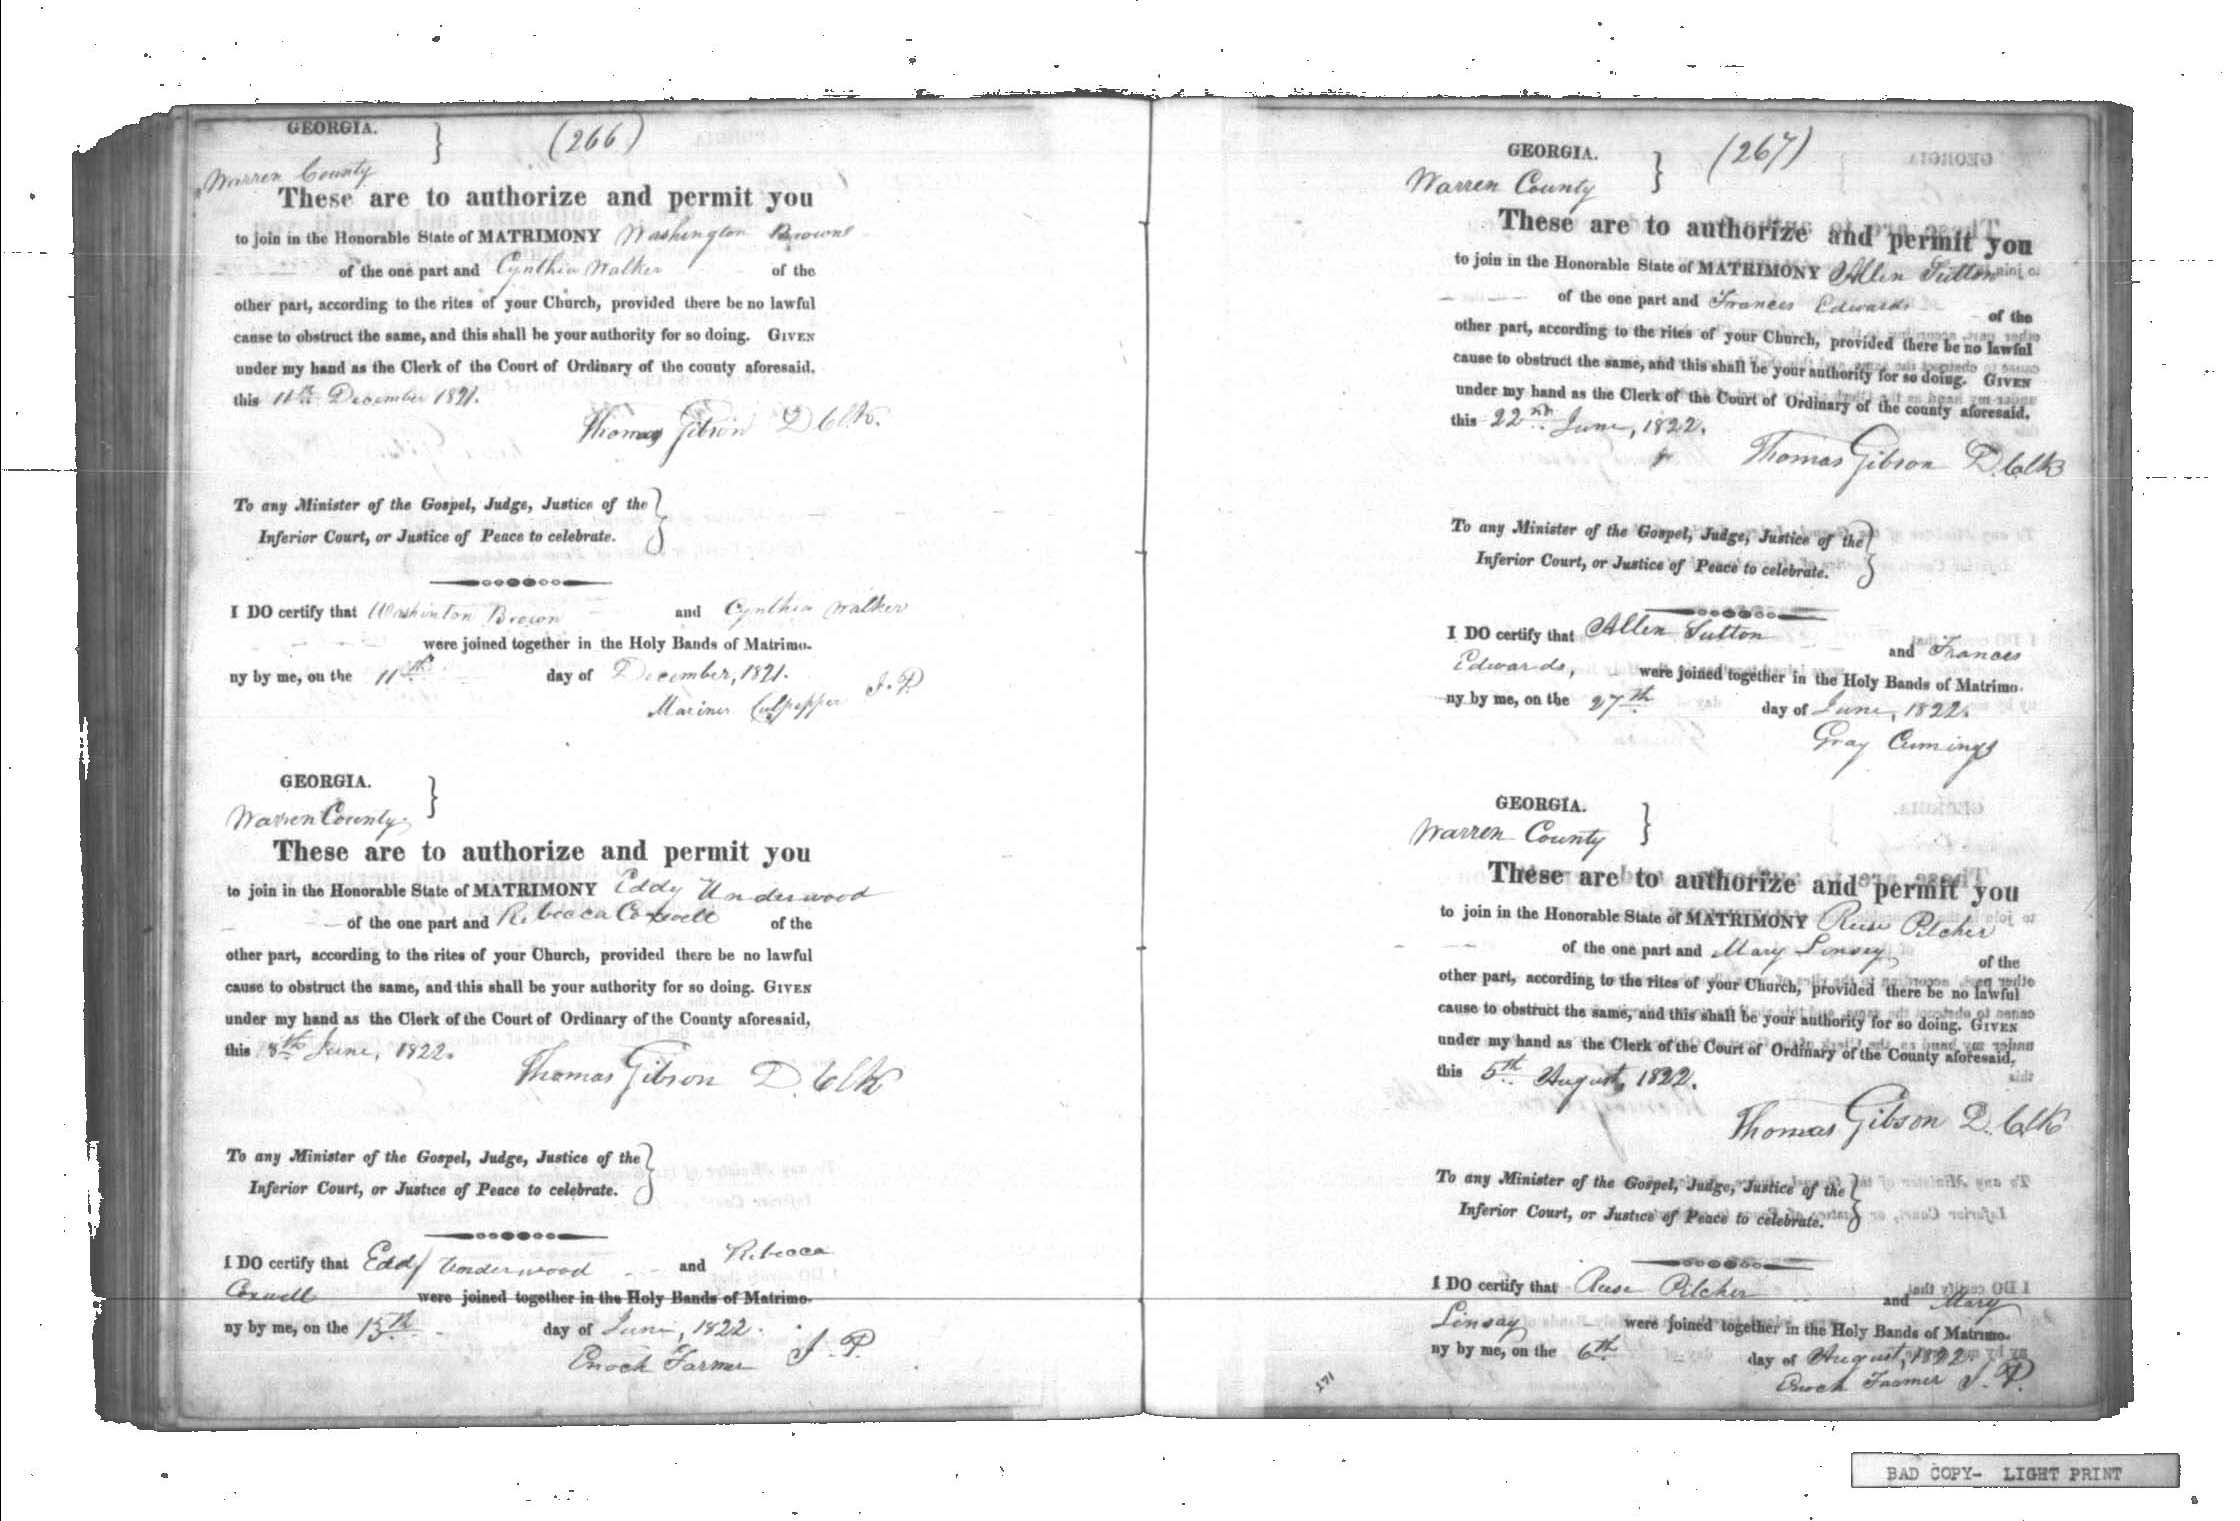 GEORGIA. } (266)
Warren County
These are to authorize and permit you
to join in the Honorable State of MATRIMONY Washington Browne
of the one part and Cynthia Walker of the
other part, according to the rites of your Church, provided there be no lawful
cause to obstruct the same, and this shall be your authority for so doing. GIVEN
under my hand as the Clerk of the Court of Ordinary of the county aforesaid,
this 11th December 1821.
Thomas Gibson D Clk.
To any Minister of the Gospel, Judge, Justice of the }
Inferior Court, or Justice of Peace to celebrate.
I DO certify that Washinton Brown and Cynthia Walker
were joined together in the Holy Bands of Matrimo-
ny by me, on the 11th day of December, 1821.
Mariner Culpepper J. P.
GEORGIA. }
Warren County.
These are to authorize and permit you
to join in the Honorable State of MATRIMONY Eddy Underwood
of the one part and Rebecca Coxwell of the
other part, according to the rites of your Church, provided there be no lawful
cause to obstruct the same, and this shall be your authority for so doing. GIVEN
under my hand as the Clerk of the Court of Ordinary of the County aforesaid,
this June, 1822.
Thomas Gibson D. Clk
To any Minister of the Gospel, Judge, Justice of the }
Inferior Court, or Justice of Peace to celebrate.
I DO certify that Eddy Underwood and Rebecca
Coxwell were joined together in the Holy Bands of Matrimo-
ny by me, on the 13th day of June, 1822.
Enoch Farmer J. P.
GEORGIA. } (267)
Warren County
These are to authorize and permit you
to join in the Honorable State of MATRIMONY Allen Sutton
of the one part and Frances Edwards of the
other part, according to the rites of your Church, provided there be no lawful
cause to obstruct the same, and this shall be your authority for so doing. GIVEN
under my hand as the Clerk of the Court of Ordinary of the county aforesaid,
this 22nd June, 1822.
Thomas Gibson D. Clk
To any Minister of the Gospel, Judge, Justice of the }
Inferior Court, or Justice of Peace to celebrate.
I DO certify that Allen Sutton and Frances
Edwards, were joined together in the Holy Bands of Matrimo-
ny by me, on the 27th day of June, 1822.
Gray Cumings
GEORGIA. }
Warren County
These are to authorize and permit you
to join in the Honorable State of MATRIMONY Reese Pilcher
of the one part and Mary Linsey of the
other part, according to the rites of your Church, provided there be no lawful
cause to obstruct the same, and this shall be your authority for so doing. GIVEN
under my hand as the Clerk of the Court of Ordinary of the County aforesaid,
this 5th August, 1822.
Thomas Gibson D. Clk
To any Minister of the Gospel, Judge, Justice of the }
Inferior Court, or Justice of Peace to celebrate.
I DO certify that Reese Pilcher and Mary
Linsay were joined together in the Holy Bands of Matrimo-
ny by me, on the 6th day of August, 1822.
Enoch Farmer J. P.
BAD COPY- LIGHT PRINT